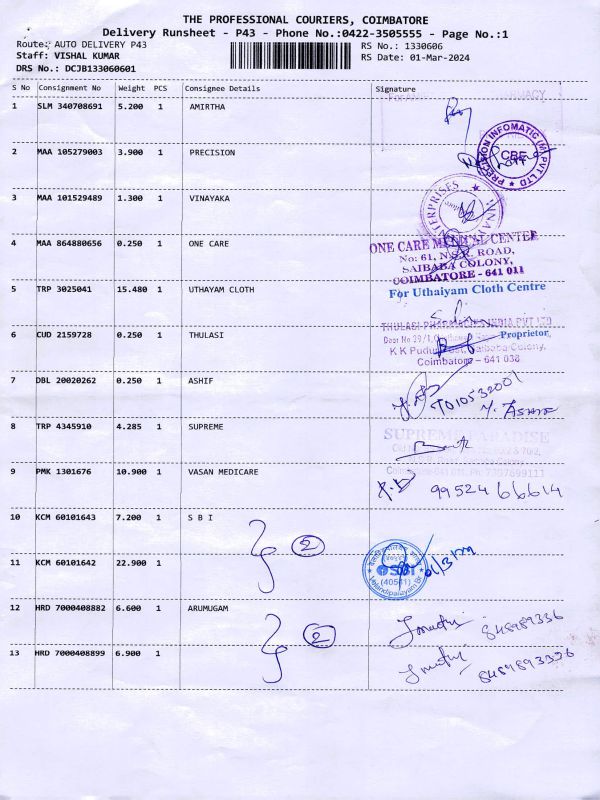 THE PROFESSIONAL COURIERS, COIMBATORE
Delivery Runsheet - P43 - Phone No.:0422-3505555 - Page No.:1
Route: AUTO DELIVERY P43 RS No.: 1330606
Staff: VISHAL KUMAR RS Date: 01-Mar-2024
DRS No.: DCJB133060601
S No Consignment No Weight PCS Consignee Details Signature
1 SLM 340708691 5.200 1 AMIRTHA
2 MAA 105279003 3.900 1 PRECISION
PRECISION INFOMATIC (M) PVT LTD
CBE
3 MAA 101529489 1.300 1 VINAYAKA
ENTERPRISES
4 MAA 864880656 0.250 1 ONE CARE
ONE CARE MEDICAL CENTER
No: 61, N.S.R. ROAD,
SAIBABA COLONY,
COIMBATORE - 641 011
5 TRP 3025041 15.480 1 UTHAYAM CLOTH
For Uthaiyam Cloth Centre
Proprietor,
6 CUD 2159728 0.250 1 THULASI
THULASI PHARMACIES INDIA PVT LTD
K K Pudur Post, Saibaba Colony,
Coimbatore - 641 038
7 DBL 20020262 0.250 1 ASHIF
TD10532001
Y. ASHIF
8 TRP 4345910 4.285 1 SUPREME
SUPREME PARADISE
9 PMK 1301676 10.900 1 VASAN MEDICARE
9952466614
10 KCM 60101643 7.200 1 S B I
2
11 KCM 60101642 22.900 1
SBI
(40541)
Velandipalayam Br.
12 HRD 7000408882 6.600 1 ARUMUGAM
2
13 HRD 7000408899 6.900 1